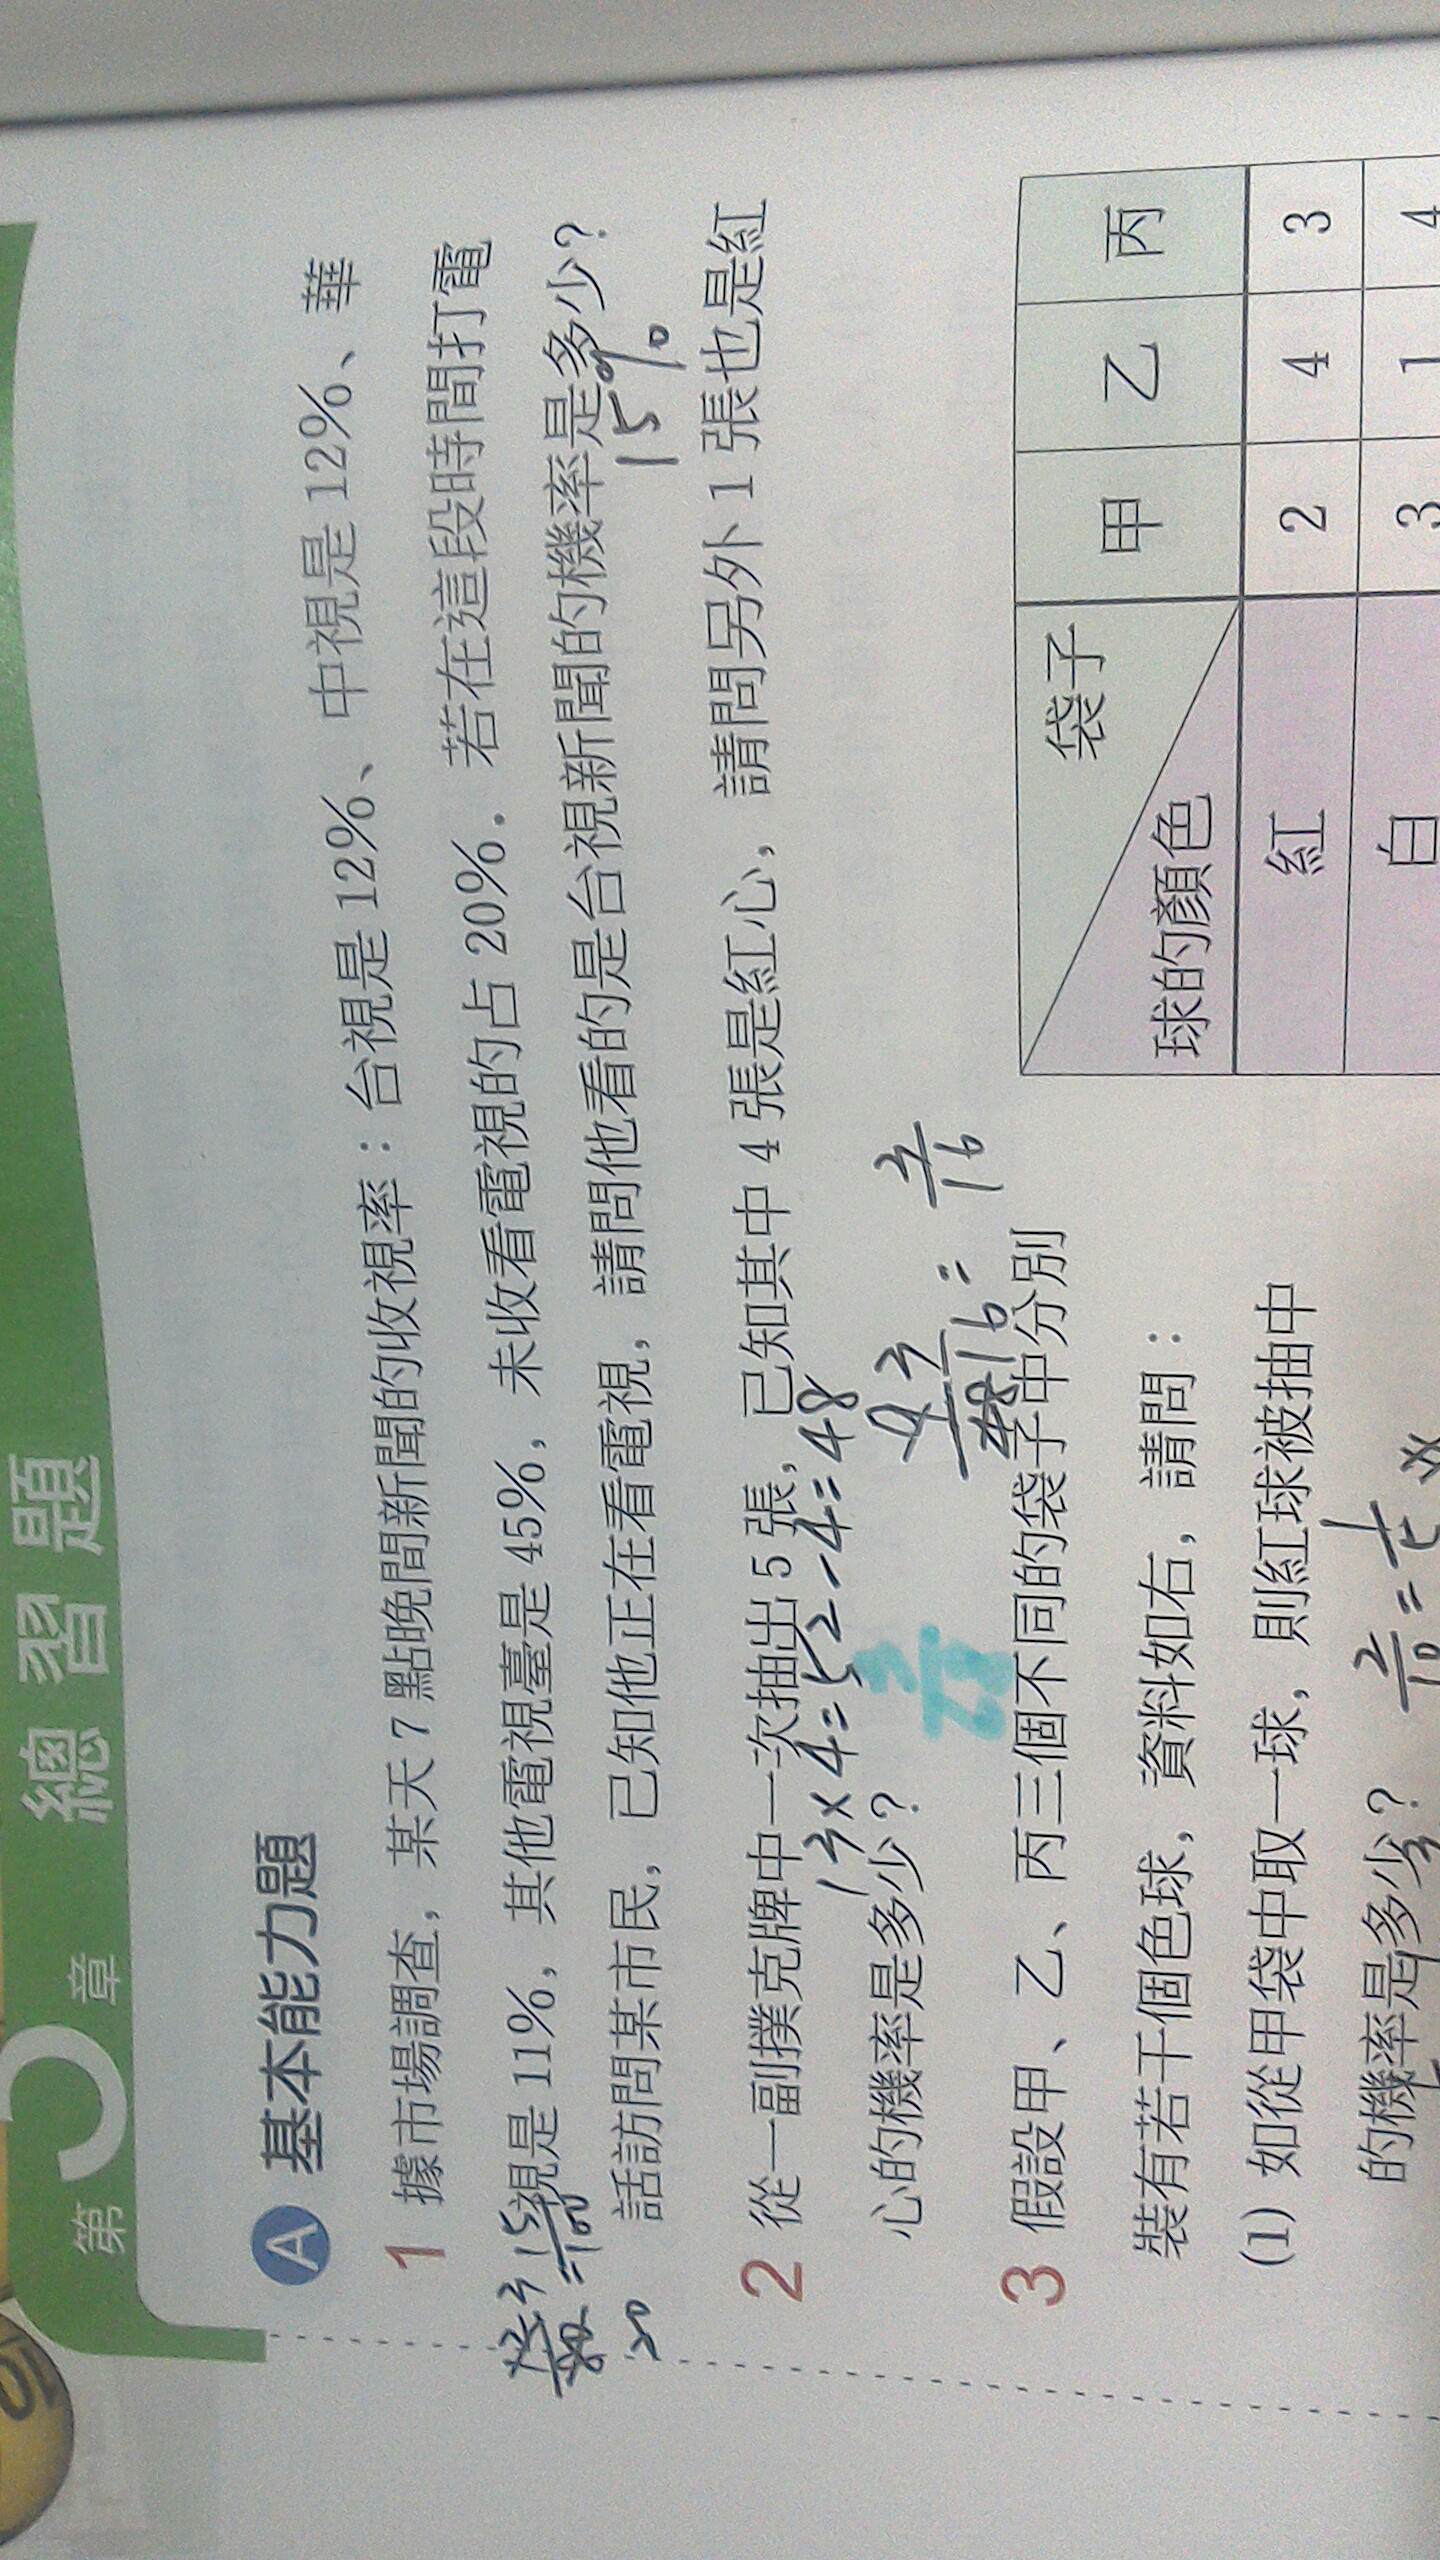 第 5 章 總習題
A 基本能力題
1 據市場調查，某天 7 點晚間新聞的收視率：台視是 12%、中視是 12%、華
視是 11%，其他電視臺是 45%，未收看電視的占 20%．若在這段時間打電
話訪問某市民，已知他正在看電視，請問他看的是台視新聞的機率是多少？
15%
2 從一副撲克牌中一次抽出 5 張，已知其中 4 張是紅心，請問另外 1 張也是紅
13×4=52-4=48
心的機率是多少？
3/16
3 假設甲、乙、丙三個不同的袋子中分別
裝有若干個色球，資料如右，請問：
(1) 如從甲袋中取一球，則紅球被抽中
的機率是多少？
袋子 甲 乙 丙
球的顏色
紅 2 4 3
白 3 1 4